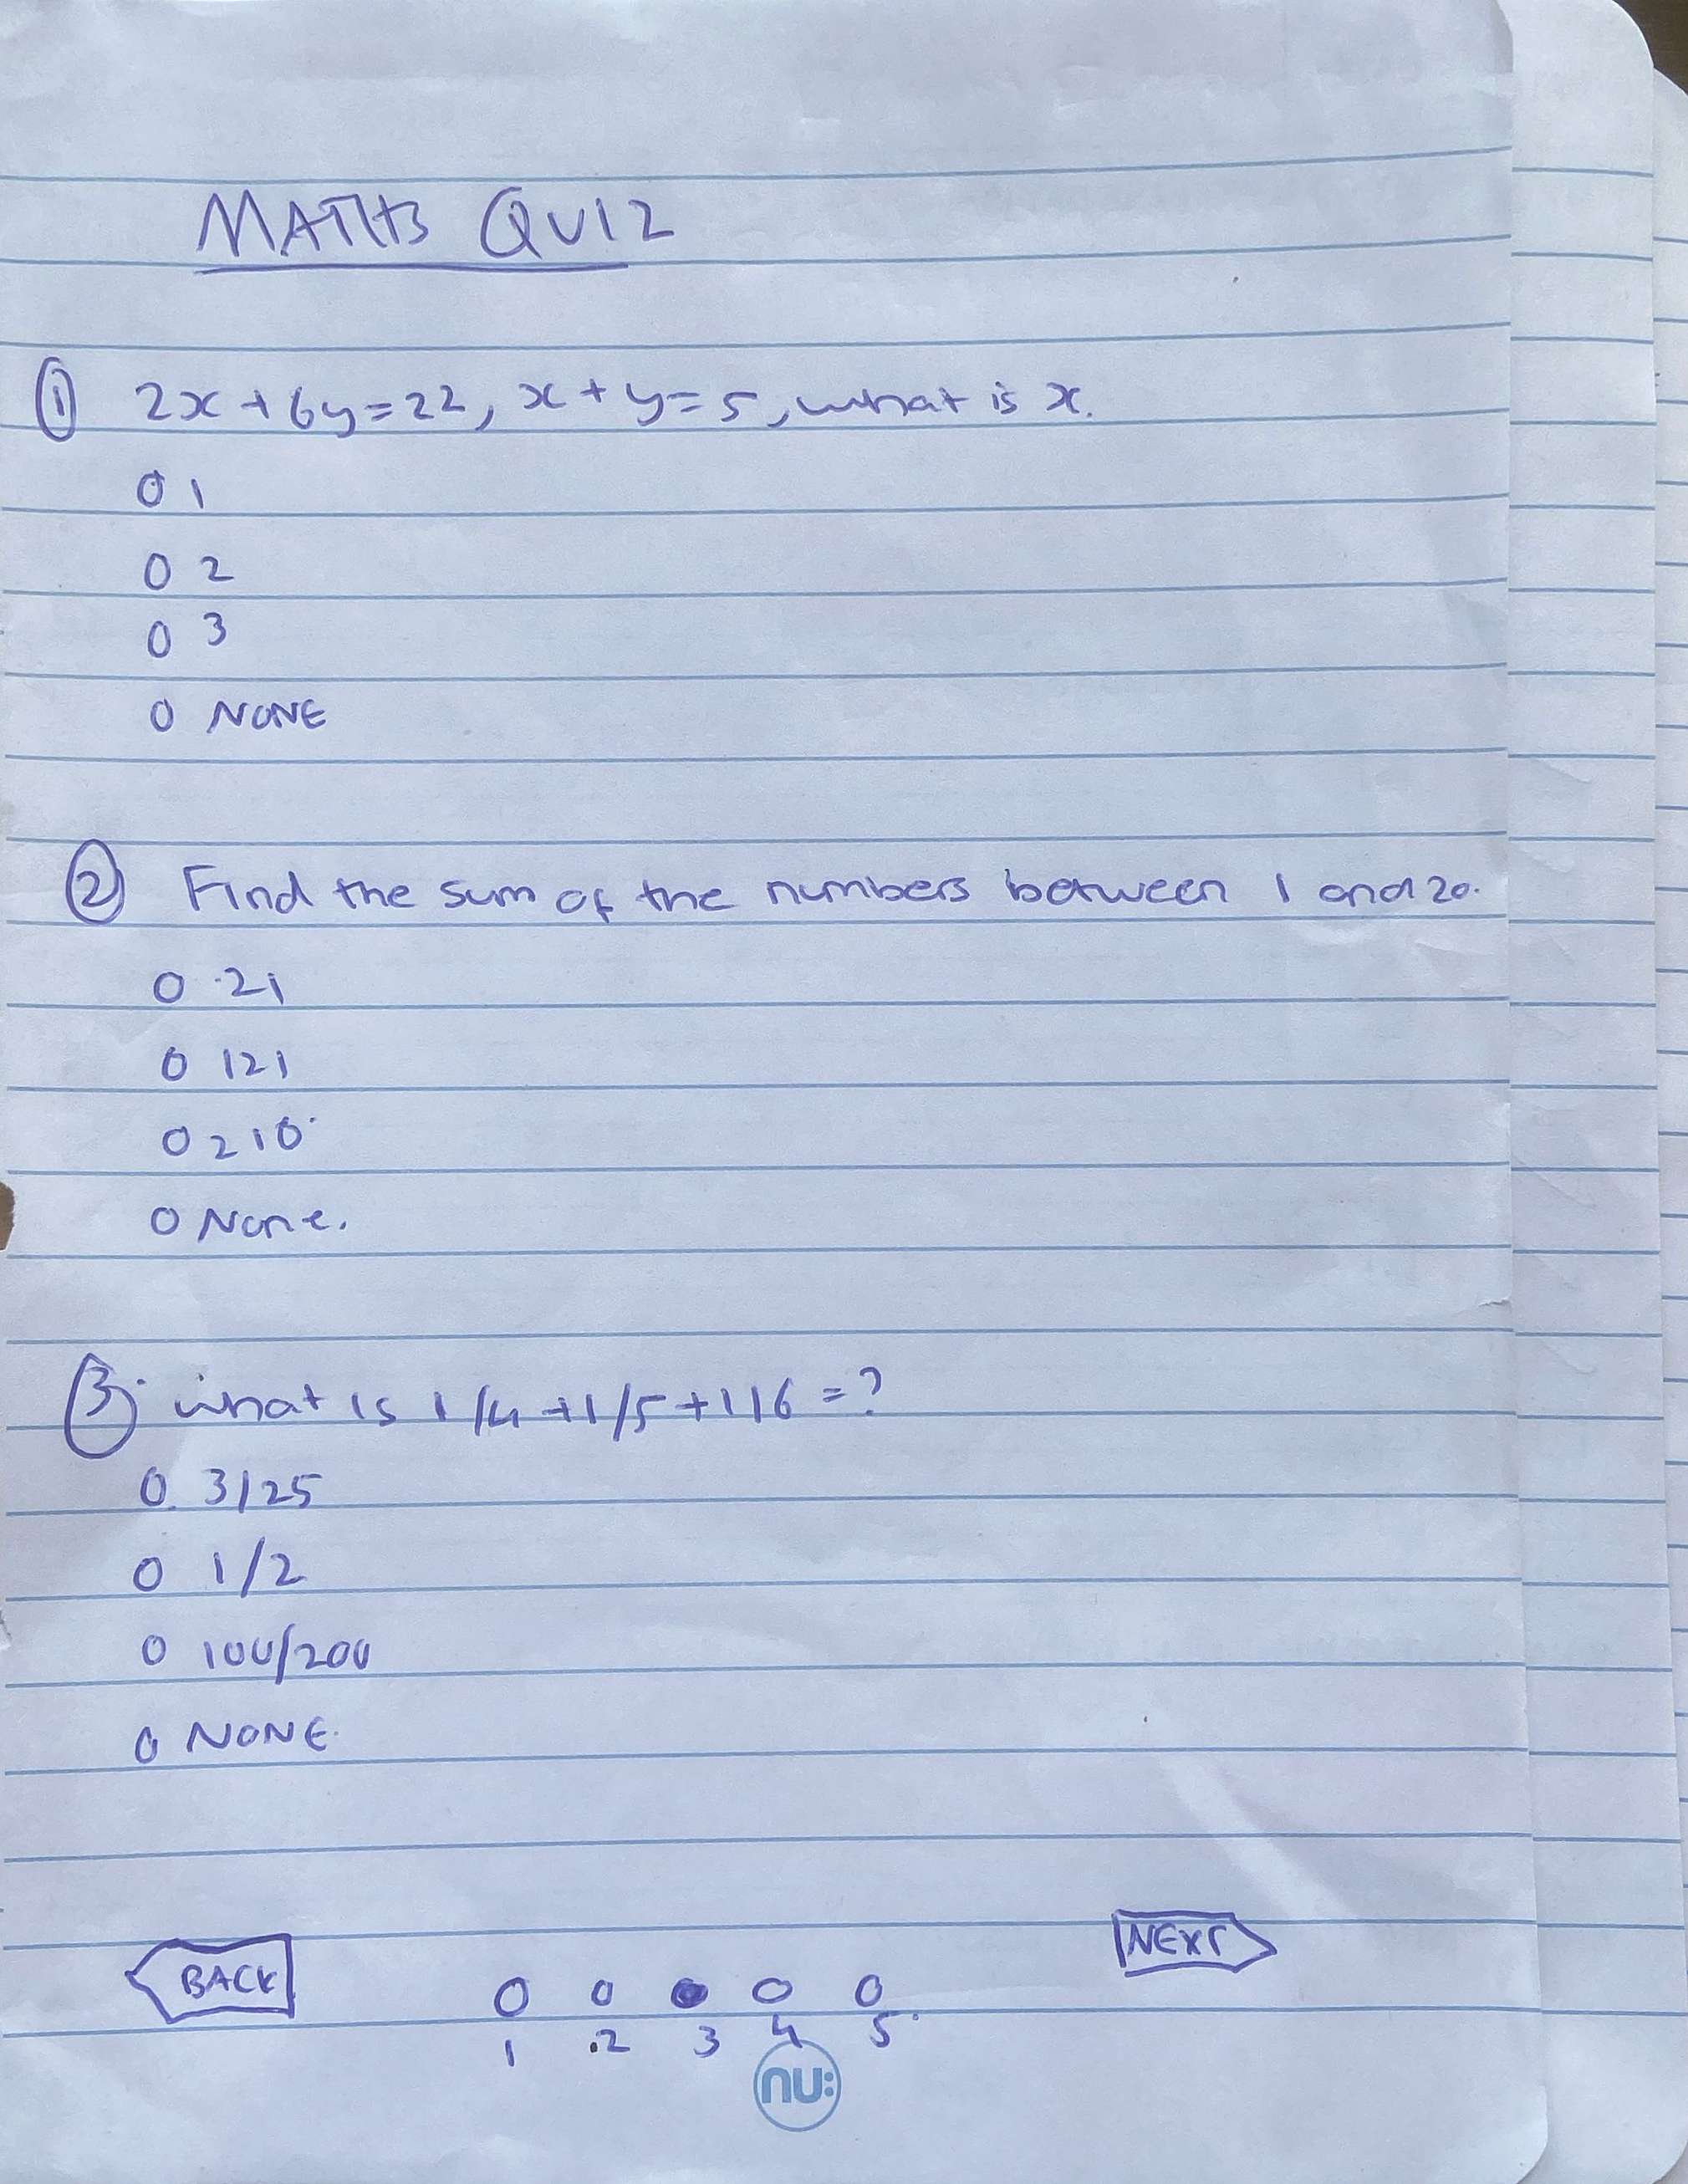 MATHS QUIZ
① 2x+6y=22, x+y=5, what is x.
O 1
O 2
O 3
O NONE
② Find the sum of the numbers between 1 and 20.
O 21
O 121
O 210
O None.
③ what is 1/4+1/5+1/6=?
O 3/25
O 1/2
O 100/200
O NONE.
BACK NEXT
1 2 3 4 5
nu: